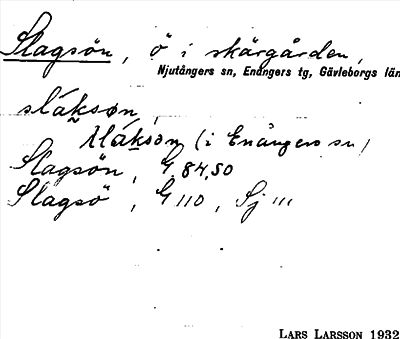 Slagsön, ö i skärgården,
Njutångers sn, Enångers tg, Gävleborgs län
sláksøn,
sláksøn (i Enångers sn)
Slagsön, G 84,50
Slagsö, G 110, Sj 111
LARS LARSSON 1932